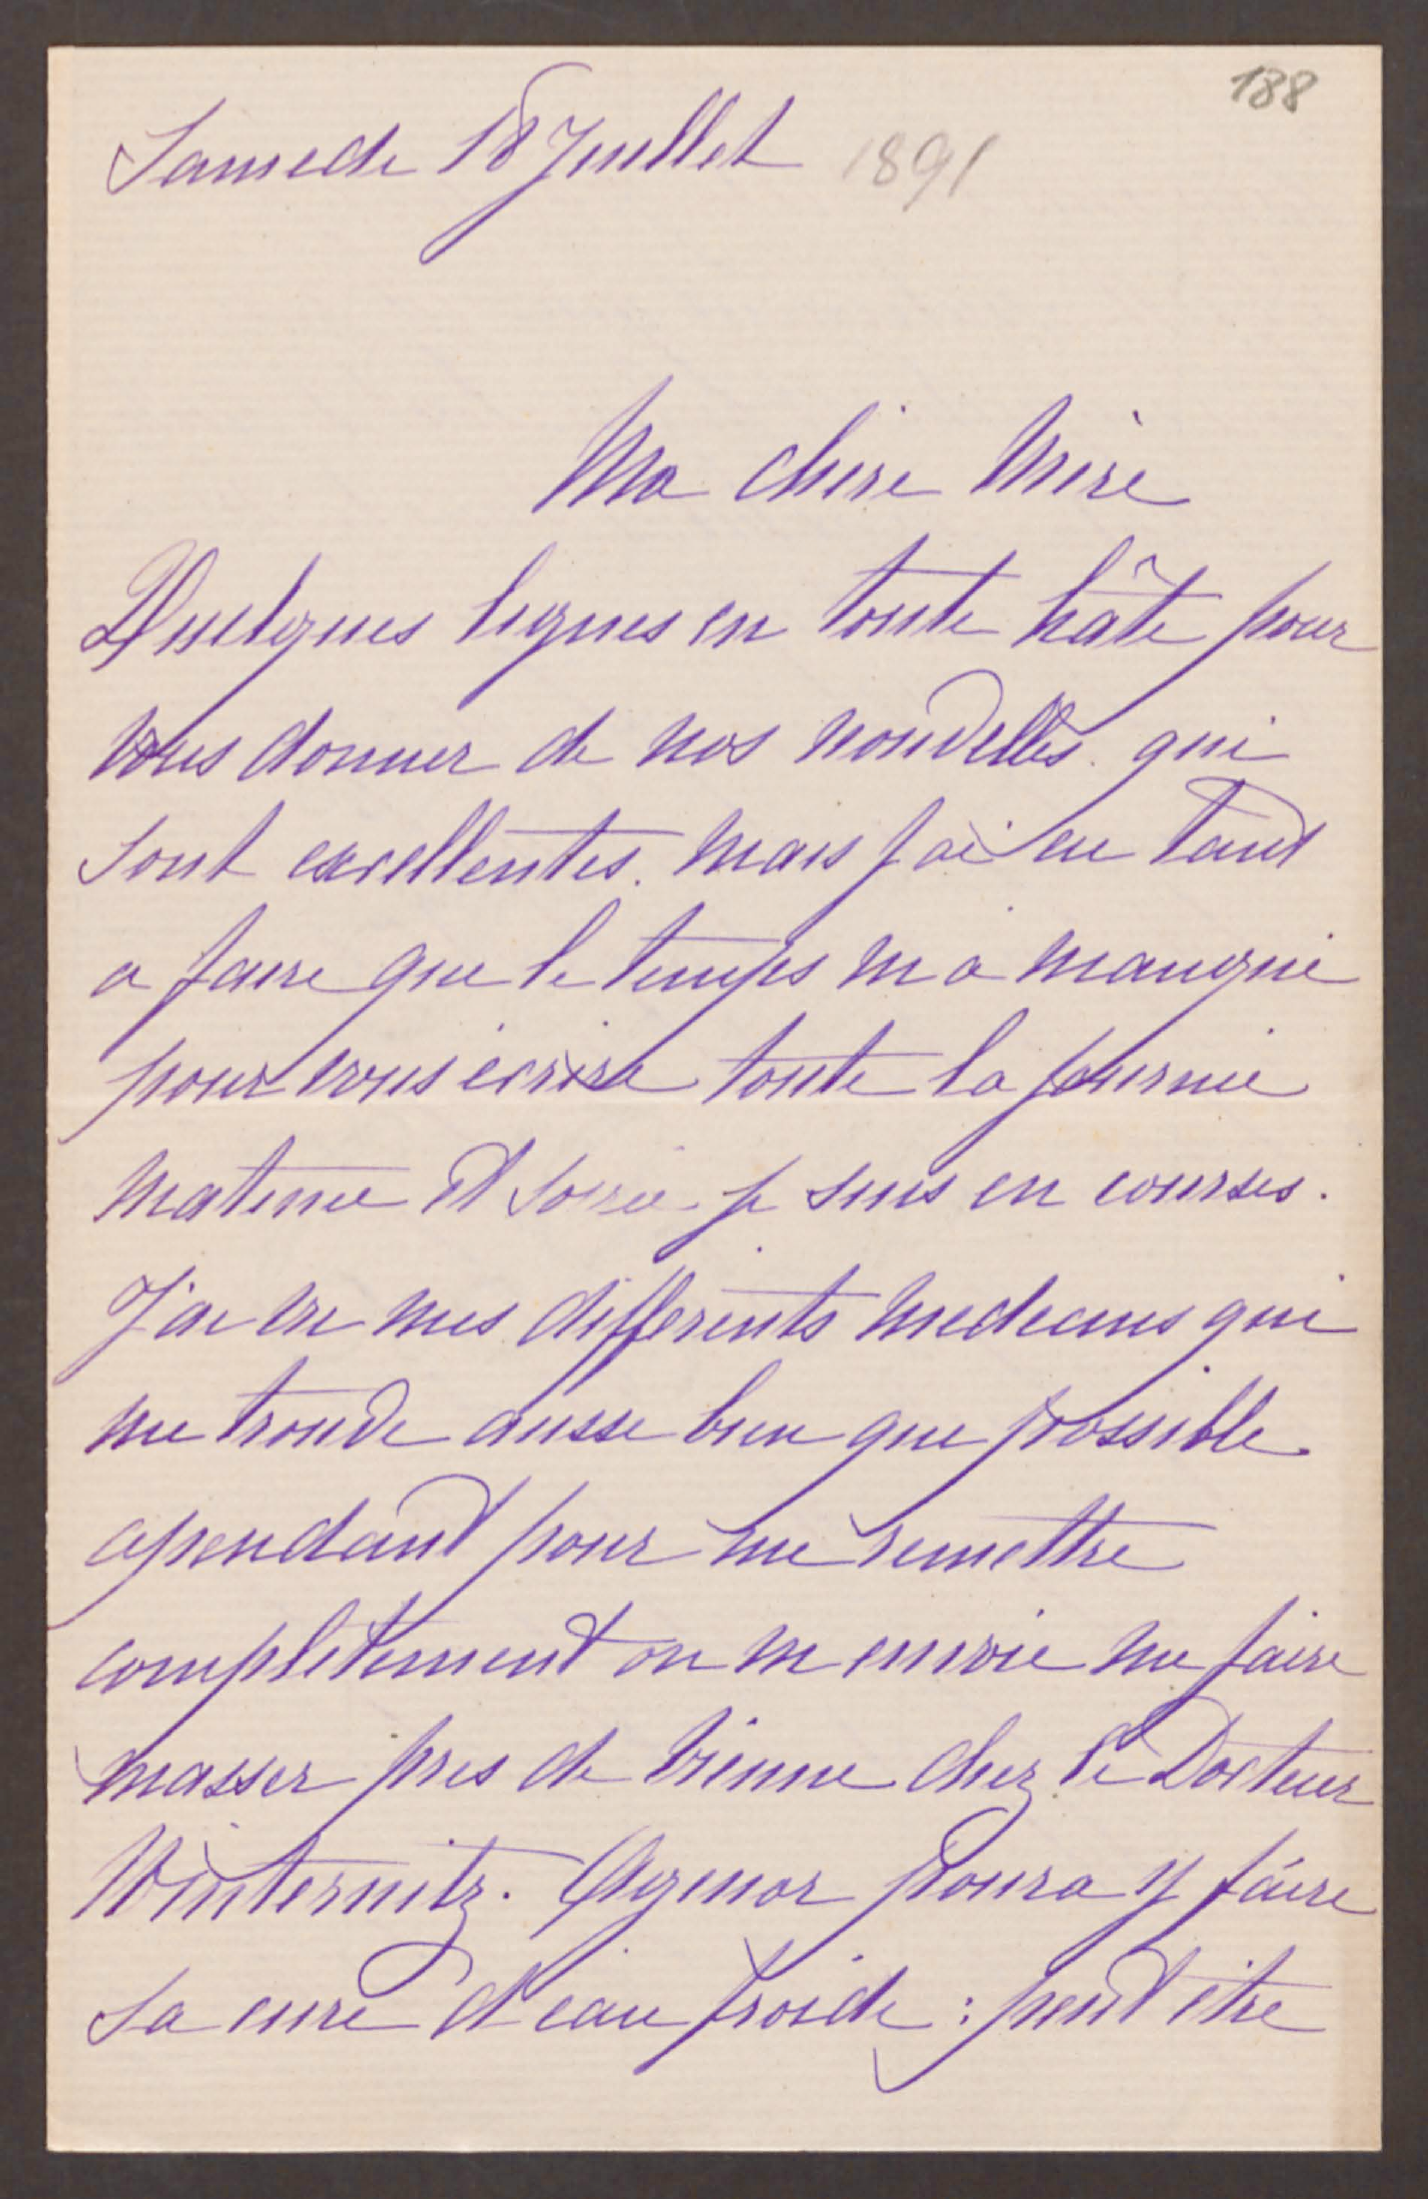 188
Samedi 18 Juillet 1891
Ma chere Mère
Quelques lignes en toute hâte pour
vous donner de nos nouvelles qui
sont excellentes. Mais j'ai eu tant
a faire que le temps m a manqué
pour vous écrire toute la journée
matinée et soirée je suis en courses.
J'ai vu mes differents medecins qui
me trouve aussi bien que possible
cependant pour me remettre
completement on m envoie me faire
masser pres de Vienne chez le Docteur
Winternitz. Agenor poura y faire
sa cure d'eau froide : peut être